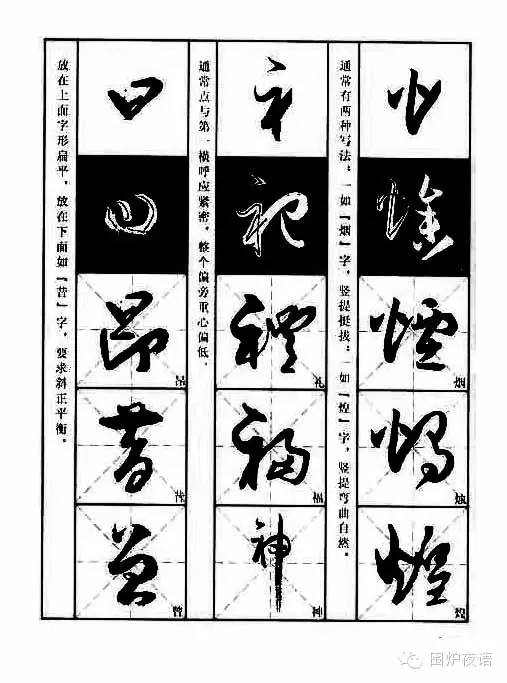 煙
烟
燭
烛
煌
煌
通常有两种写法：一如「烟」字，竖提挺拔；一如「煌」字，竖提弯曲自然。
礻
禮
礼
福
福
神
神
通常点与第一横呼应紧密，整个偏旁重心偏低。
日
昂
昂
昔
昔
曾
曾
放在上面字形扁平，放在下面如「昔」字，要求斜正平衡。
围炉夜语